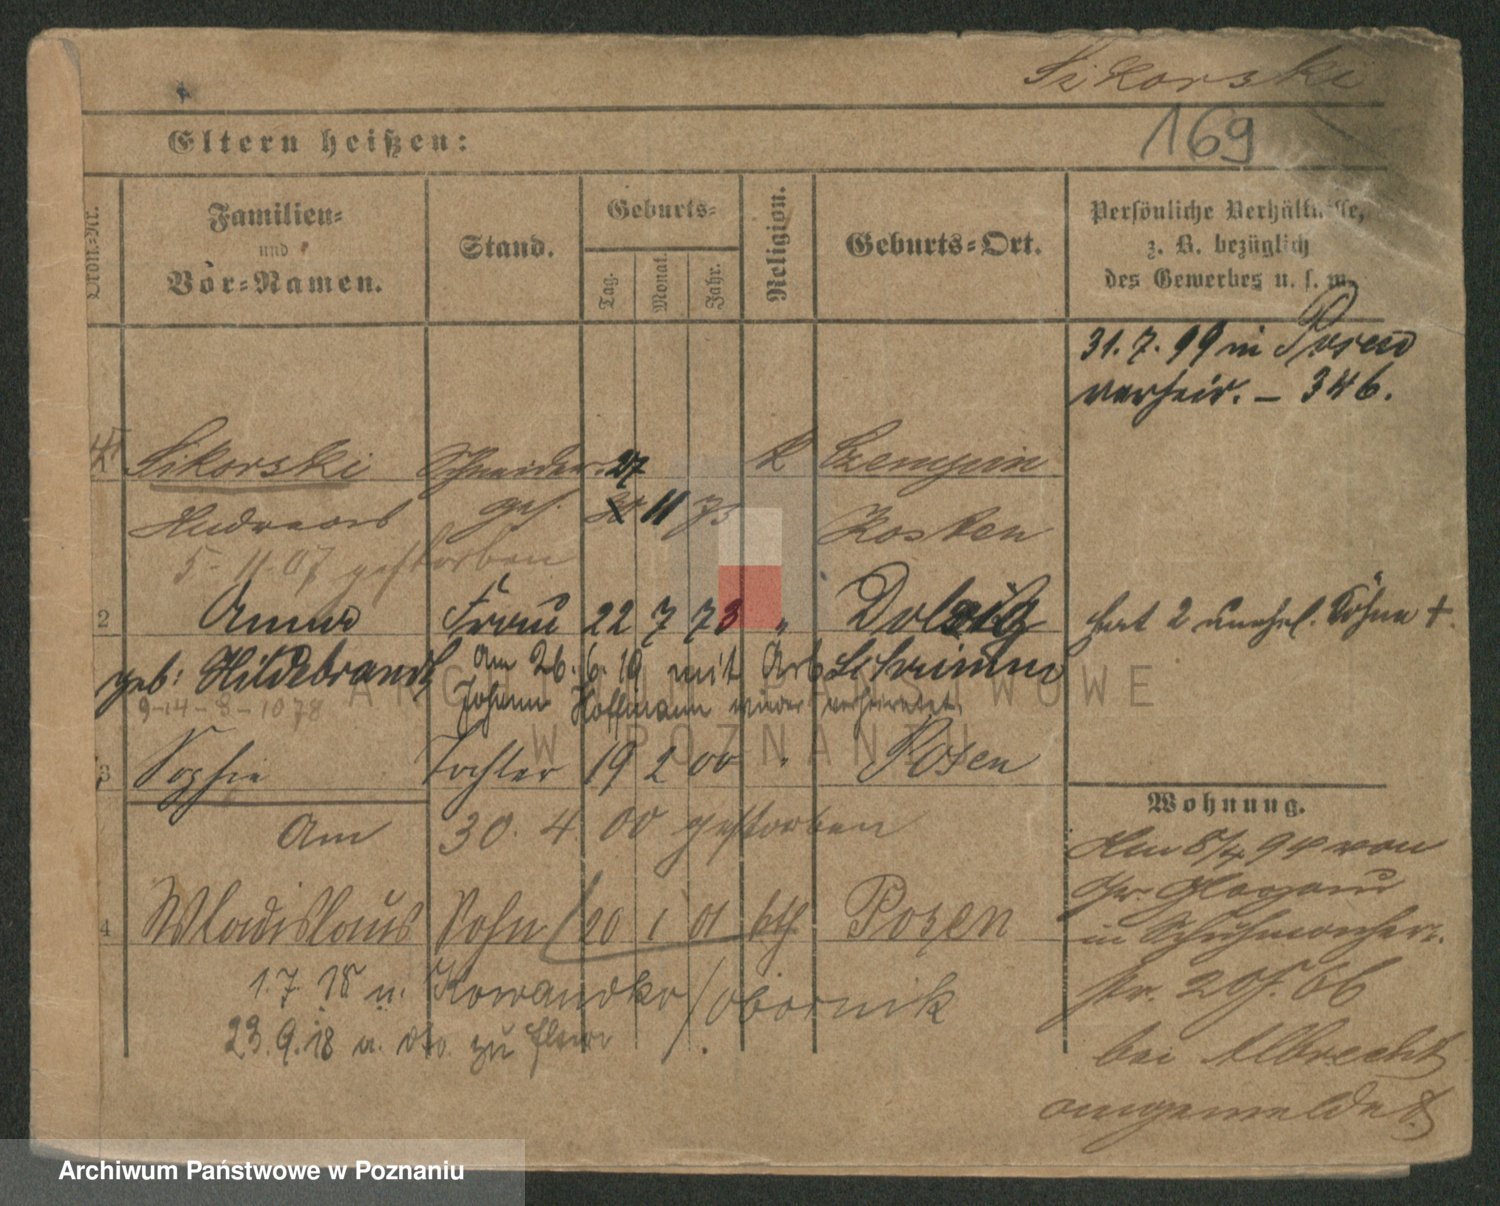 Sikorski
169
Eltern heißen:
Ordn.-Nr.
Familien-
und
Vor-Namen.
Stand.
Geburts-
Tag.
Monat.
Jahr.
Religion.
Geburts-Ort.
Persönliche Verhältnisse,
z. B. bezüglich
des Gewerbes u. s. w.
31. 7. 99 in Posen
verheir. – 346.
Sikorski Schneider 27 k Czempin
Andreas ges. 11 73 Kosten
5-11-07 gestorben
2 Anna Frau 22 7 73 " Dolzig hat 2 unehl. Söhne +.
geb: Hildebrandt Am 26.6.19 mit Arb. Schrimm
Johann Hoffmann wieder verheiratet.
9-14-8-1078
ARCHIWUM PAŃSTWOWE
W POZNANIU
3 Sophie Tochter 19 2 00 " Posen
Wohnung.
Am 30. 4. 00 gestorben
Am 8/4 94 von
Gr. Glogau
in Schuhmacher-
str. 20
4 Wladislaus Sohn 20 1 01 kth. Posen
1.7.18 n. / Obornik
23.9.18 a. dto. zu Eltern
bei Albrecht
angemeldet.
Archiwum Państwowe w Poznaniu